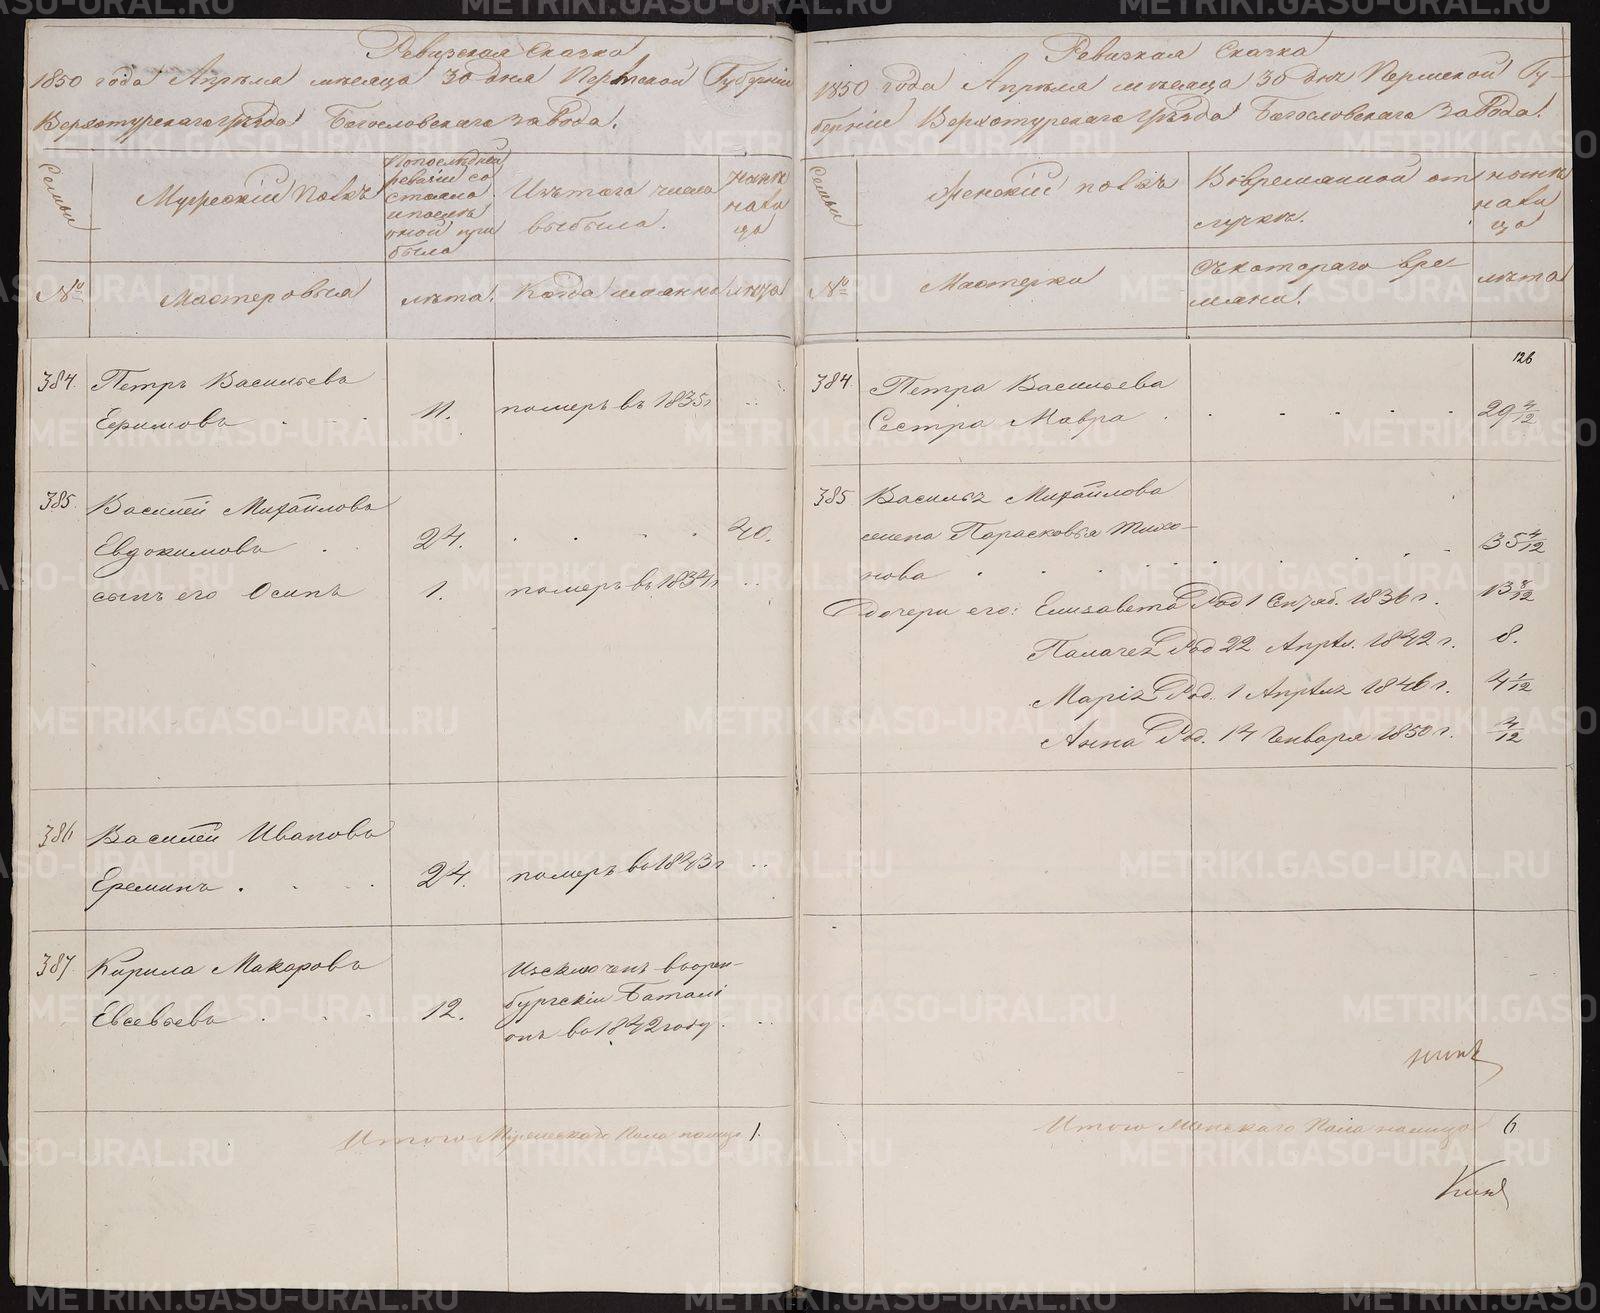 Ревизская Сказка
1850 года Апрѣля мѣсяца 30 дня Пермской Губерніи
Верхотурскаго уѣзда Богословскаго завода.
Семьи
Мужескій полъ
По последней ревизіи состояло и после оной прибыло
Изъ того числа выбыло.
ныне на лицо
№
Мастеровыя
лѣта.
Когда именно
лѣта
384.
Петръ Васильевъ
Ефимовъ
11.
померъ въ 1835 г
385.
Василей Михайловъ
Евдокимовъ
24.
40.
сынъ его Осипъ
1.
померъ въ 1834 г
386
Василей Ивановъ
Ереминъ
24.
померъ во 1843 г
387
Кирила Макаровъ
Евсевьевъ
12.
Изключенъ въ орен-
бургскіи Баталі
онъ во 1842 году.
Итого Мужескаго Пола на лицо 1.
Ревизкая Сказка
1850 года Апрѣля мѣсяца 30 дня Пермской Гу-
берніи Верхотурскаго уѣзда Богословскаго завода.
Семьи
Женскій полъ
Во временной от
лучкѣ.
ныне на лицо
№
Мастерки
Съ котораго вре
мяни.
лѣта
126
384
Петра Васильева
Сестра Мавра
29 4/12
385
Василья Михайлова
жена Парасковья Тихо-
нова
35 4/12
дочери его: Елизавета Род 1 Сентяб. 1836 г.
13 8/12
Палагея Род 22 Апрѣл. 1842 г.
8.
Марія Род. 1 Апрѣля 1846 г.
4 1/12
Анна Род. 14 Генваря 1850 г.
4/12
Итого Женскаго Пола на лицо 6
METRIKI.GASO-URAL.RU